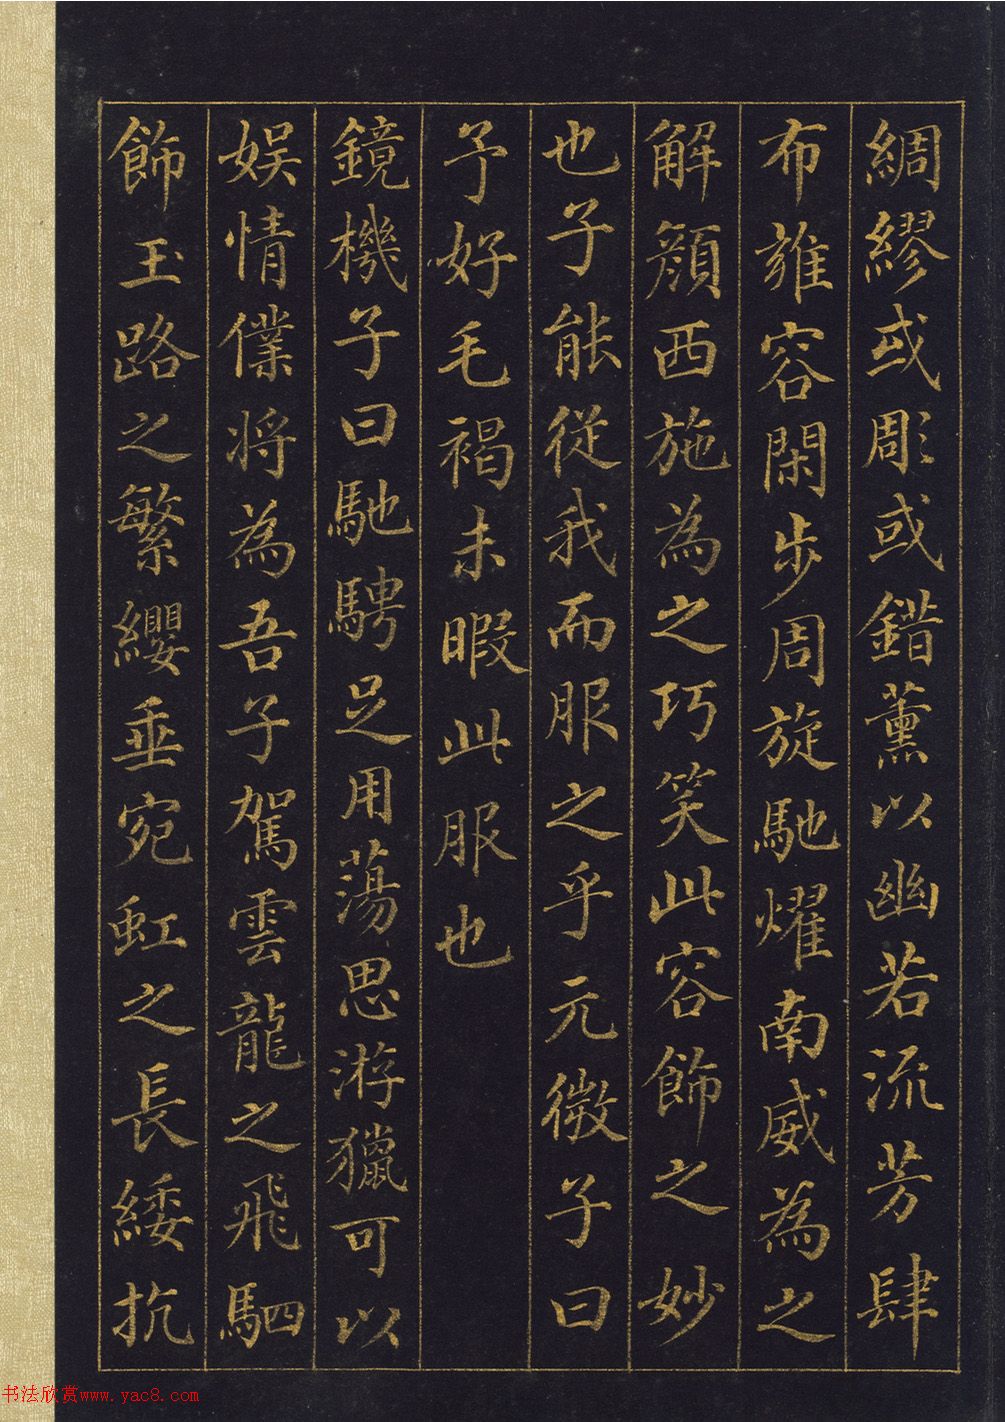 綢繆或彫或錯薰以幽若流芳肆
布雍容閑步周旋馳燿南威為之
解顔西施為之巧笑此容飾之妙
也子能從我而服之乎元微子曰
予好毛褐未暇此服也
鏡機子曰馳騁足用蕩思游獵可以
娛情僕將為吾子駕雲龍之飛駟
飾玉路之繁纓垂宛虹之長緌抗
书法欣赏www.yac8.com